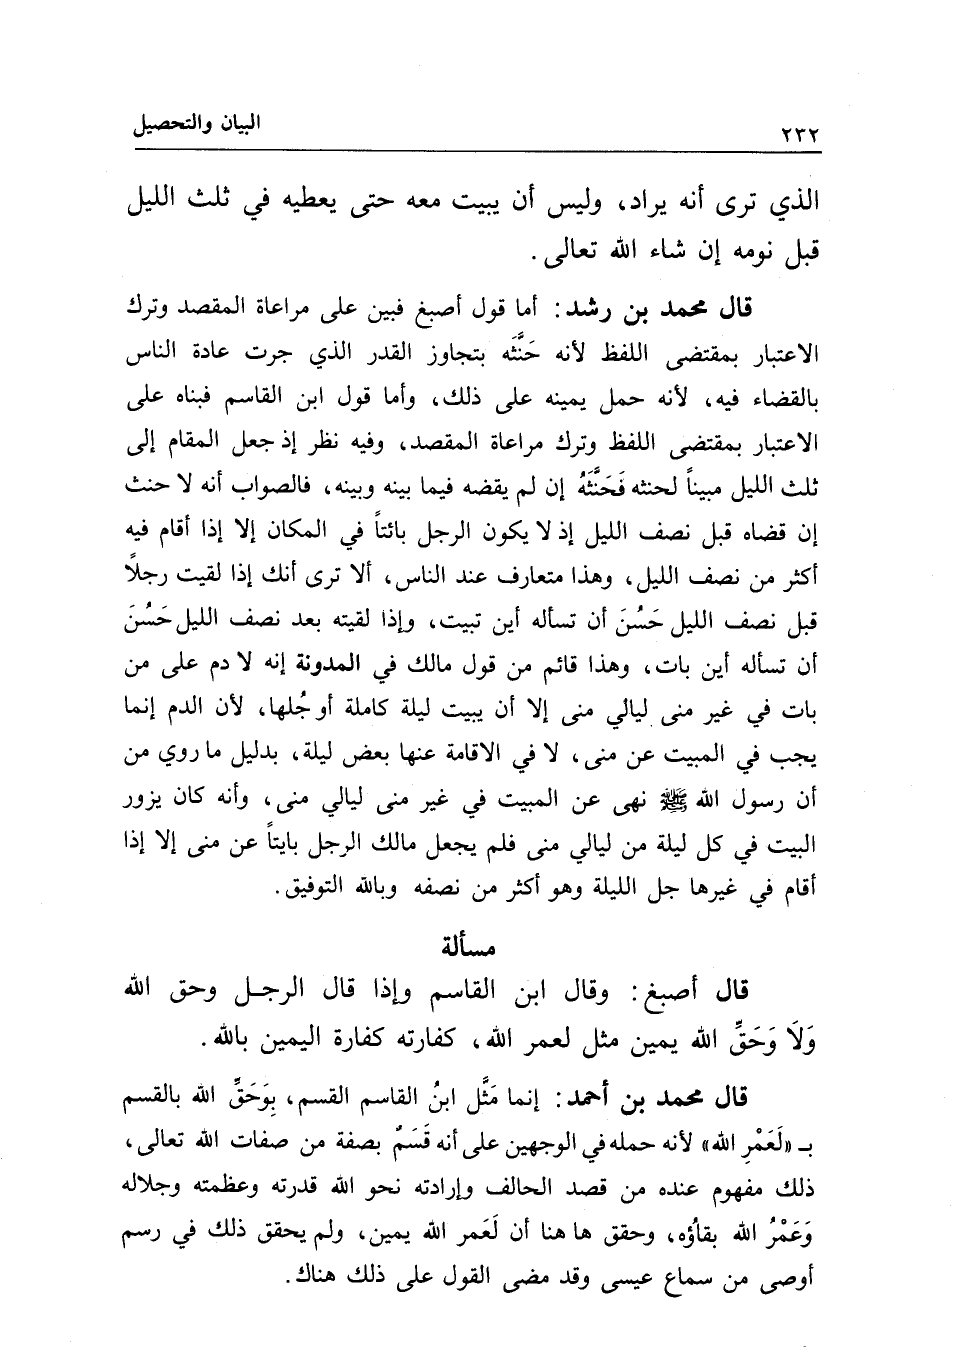 ٢٣٢ البيان والتحصيل
الذي ترى أنه يراد، وليس أن يبيت معه حتى يعطيه في ثلث الليل
قبل نومه إن شاء الله تعالى.
قال محمد بن رشد: أما قول أصبغ فبين على مراعاة المقصد وترك
الاعتبار بمقتضى اللفظ لأنه حَنَّثَه بتجاوز القدر الذي جرت عادة الناس
بالقضاء فيه، لأنه حمل يمينه على ذلك، وأما قول ابن القاسم فبناه على
الاعتبار بمقتضى اللفظ وترك مراعاة المقصد، وفيه نظر إذ جعل المقام إلى
ثلث الليل مبيناً لحنثه فَحَنَّثَهُ إن لم يقضه فيما بينه وبينه، فالصواب أنه لا حنث
إن قضاه قبل نصف الليل إذ لا يكون الرجل بائتاً في المكان إلا إذا أقام فيه
أكثر من نصف الليل، وهذا متعارف عند الناس، ألا ترى أنك إذا لقيت رجلاً
قبل نصف الليل حَسُنَ أن تسأله أين تبيت، وإذا لقيته بعد نصف الليل حَسُنَ
أن تسأله أين بات، وهذا قائم من قول مالك في المدونة إنه لا دم على من
بات في غير منى ليالي منى إلا أن يبيت ليلة كاملة أو جُلها، لأن الدم إنما
يجب في المبيت عن منى، لا في الاقامة عنها بعض ليلة، بدليل ما روي من
أن رسول الله ﷺ نهى عن المبيت في غير منى ليالي منى، وأنه كان يزور
البيت في كل ليلة من ليالي منى فلم يجعل مالك الرجل بايتاً عن منى إلا إذا
أقام في غيرها جل الليلة وهو أكثر من نصفه وبالله التوفيق.
مسألة
قال أصبغ: وقال ابن القاسم وإذا قال الرجل وحق الله
وَلَا وَحَقِّ الله يمين مثل لعمر الله، كفارته كفارة اليمين بالله.
قال محمد بن أحمد: إنما مَثَّل ابنُ القاسم القسم، بِوَحَقِّ الله بالقسم
بـ «لَعَمْرِ الله» لأنه حمله في الوجهين على أنه قَسَمٌ بصفة من صفات الله تعالى،
ذلك مفهوم عنده من قصد الحالف وإرادته نحو الله قدرته وعظمته وجلاله
وَعَمْرُ الله بقاؤه، وحقق ها هنا أن لَعَمر الله يمين، ولم يحقق ذلك في رسم
أوصى من سماع عيسى وقد مضى القول على ذلك هناك.